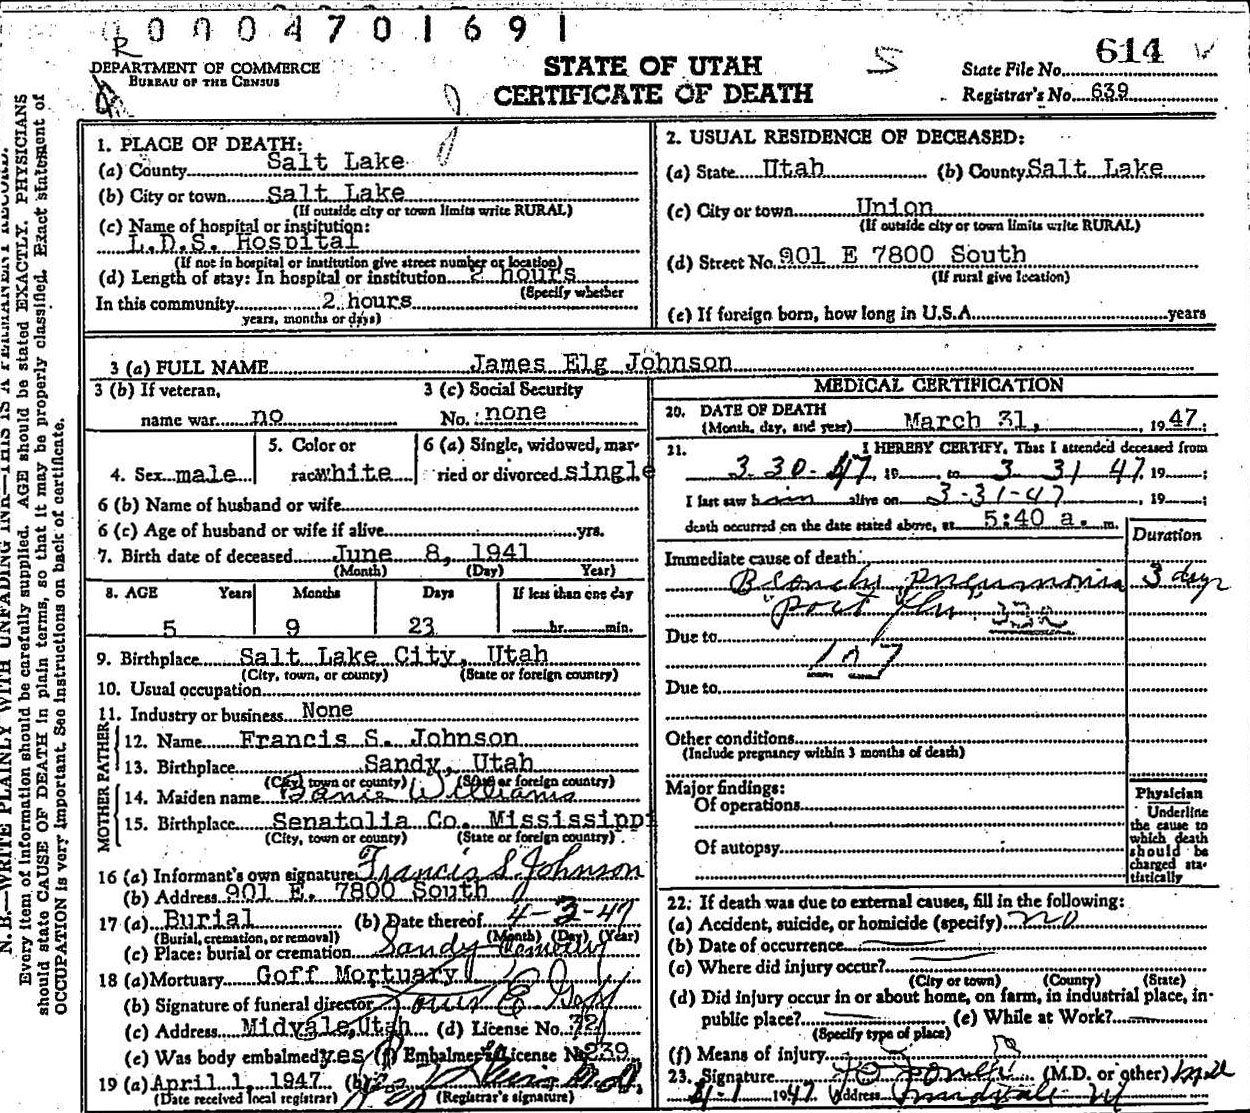 00004701691
R
DEPARTMENT OF COMMERCE
BUREAU OF THE CENSUS
STATE OF UTAH
CERTIFICATE OF DEATH
S
State File No. 614
Registrar's No. 639
N. B.—WRITE PLAINLY WITH UNFADING INK—THIS IS A PERMANENT RECORD.
Every item of information should be carefully supplied. AGE should be stated EXACTLY. PHYSICIANS
should state CAUSE OF DEATH in plain terms, so that it may be properly classified. Exact statement of
OCCUPATION is very important. See instructions on back of certificate.
1. PLACE OF DEATH:
(a) County Salt Lake
(b) City or town Salt Lake
(If outside city or town limits write RURAL)
(c) Name of hospital or institution:
L.D.S. Hospital
(If not in hospital or institution give street number or location)
(d) Length of stay: In hospital or institution 2 hours
(Specify whether
In this community 2 hours
years, months or days)
2. USUAL RESIDENCE OF DECEASED:
(a) State Utah (b) County Salt Lake
(c) City or town Union
(If outside city or town limits write RURAL)
(d) Street No. 901 E 7800 South
(If rural give location)
(e) If foreign born, how long in U.S.A. years
3 (a) FULL NAME James Elg Johnson
3 (b) If veteran, 3 (c) Social Security
name war no No. none
4. Sex male 5. Color or race white 6 (a) Single, widowed, mar-
ried or divorced single
6 (b) Name of husband or wife
6 (c) Age of husband or wife if alive yrs.
7. Birth date of deceased June 8, 1941
(Month) (Day) Year)
8. AGE Years Months Days If less than one day
5 9 23 hr. min.
9. Birthplace Salt Lake City, Utah
(City, town, or county) (State or foreign country)
10. Usual occupation
11. Industry or business None
FATHER
12. Name Francis S. Johnson
13. Birthplace Sandy, Utah
(City, town or county) (State or foreign country)
MOTHER
14. Maiden name Williams
15. Birthplace Senatolia Co. Mississippi
(City, town or county) (State or foreign country)
16 (a) Informant's own signature Francis S. Johnson
(b) Address 901 E. 7800 South
17 (a) Burial (b) Date thereof 4-3-47
(Burial, cremation, or removal) (Month) (Day) (Year)
(c) Place: burial or cremation Sandy Cemetery
18 (a) Mortuary Goff Mortuary
(b) Signature of funeral director E Goff
(c) Address Midvale, Utah (d) License No. 72
(e) Was body embalmed yes (f) Embalmer's License No. 239
19 (a) April 1, 1947 (b)
(Date received local registrar) (Registrar's signature)
MEDICAL CERTIFICATION
20. DATE OF DEATH March 31, , 1947
(Month, day, and year)
21. I HEREBY CERTIFY, That I attended deceased from
3-30-47, 19 to 3 31 47, 19 ;
I last saw him alive on 3-31-47 , 19 ;
death occurred on the date stated above, at 5:40 a. m.
Duration
Immediate cause of death:
Broncho pneumonia 3 days
"Post flu
Due to
107
Due to
Other conditions
(Include pregnancy within 3 months of death)
Major findings:
Of operations
Of autopsy
Physician
Underline
the cause to
which death
should be
charged sta-
tistically
22. If death was due to external causes, fill in the following:
(a) Accident, suicide, or homicide (specify) no
(b) Date of occurrence
(c) Where did injury occur?
(City or town) (County) (State)
(d) Did injury occur in or about home, on farm, in industrial place, in-
public place? (e) While at Work?
(Specify type of place)
(f) Means of injury
23. Signature (M.D. or other)
4-1 1947 Address Midvale